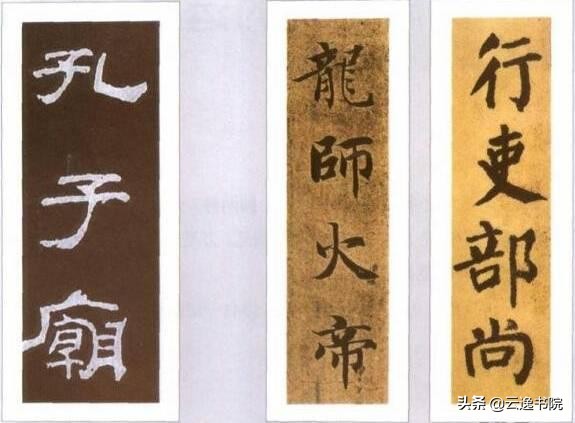 孔子廟
龍師火帝
行吏部尚
头条 @云逸书院